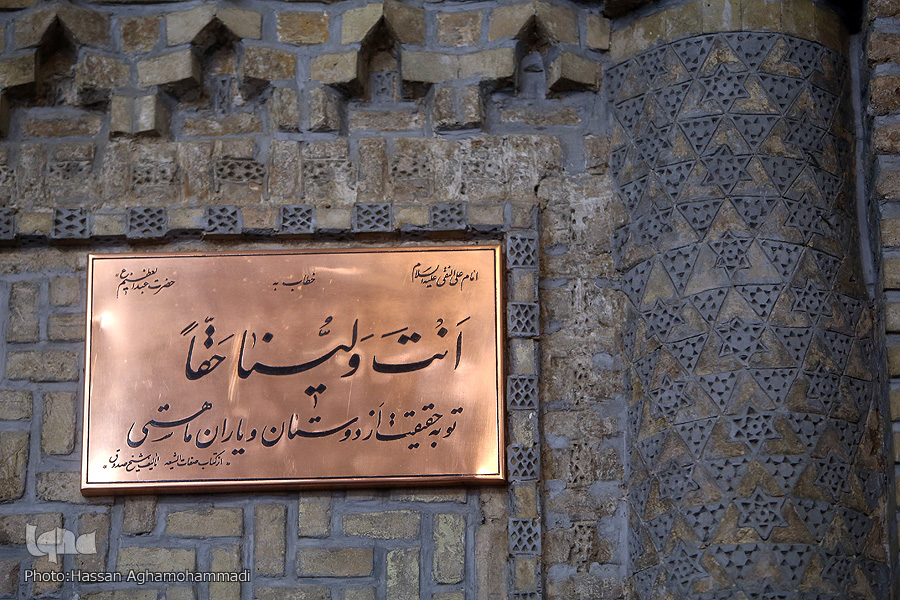 امام علی النقی علیه السلام خطاب به حضرت عبدالعظیم ع
اَنْتَ وَلیُّنا حَقّاً
تو به حقیقت از دوستان و یاران ما هستی
"از کتاب صفات الشیعه تالیف شیخ صدوق"
iqna
Photo:Hassan Aghamohammadi